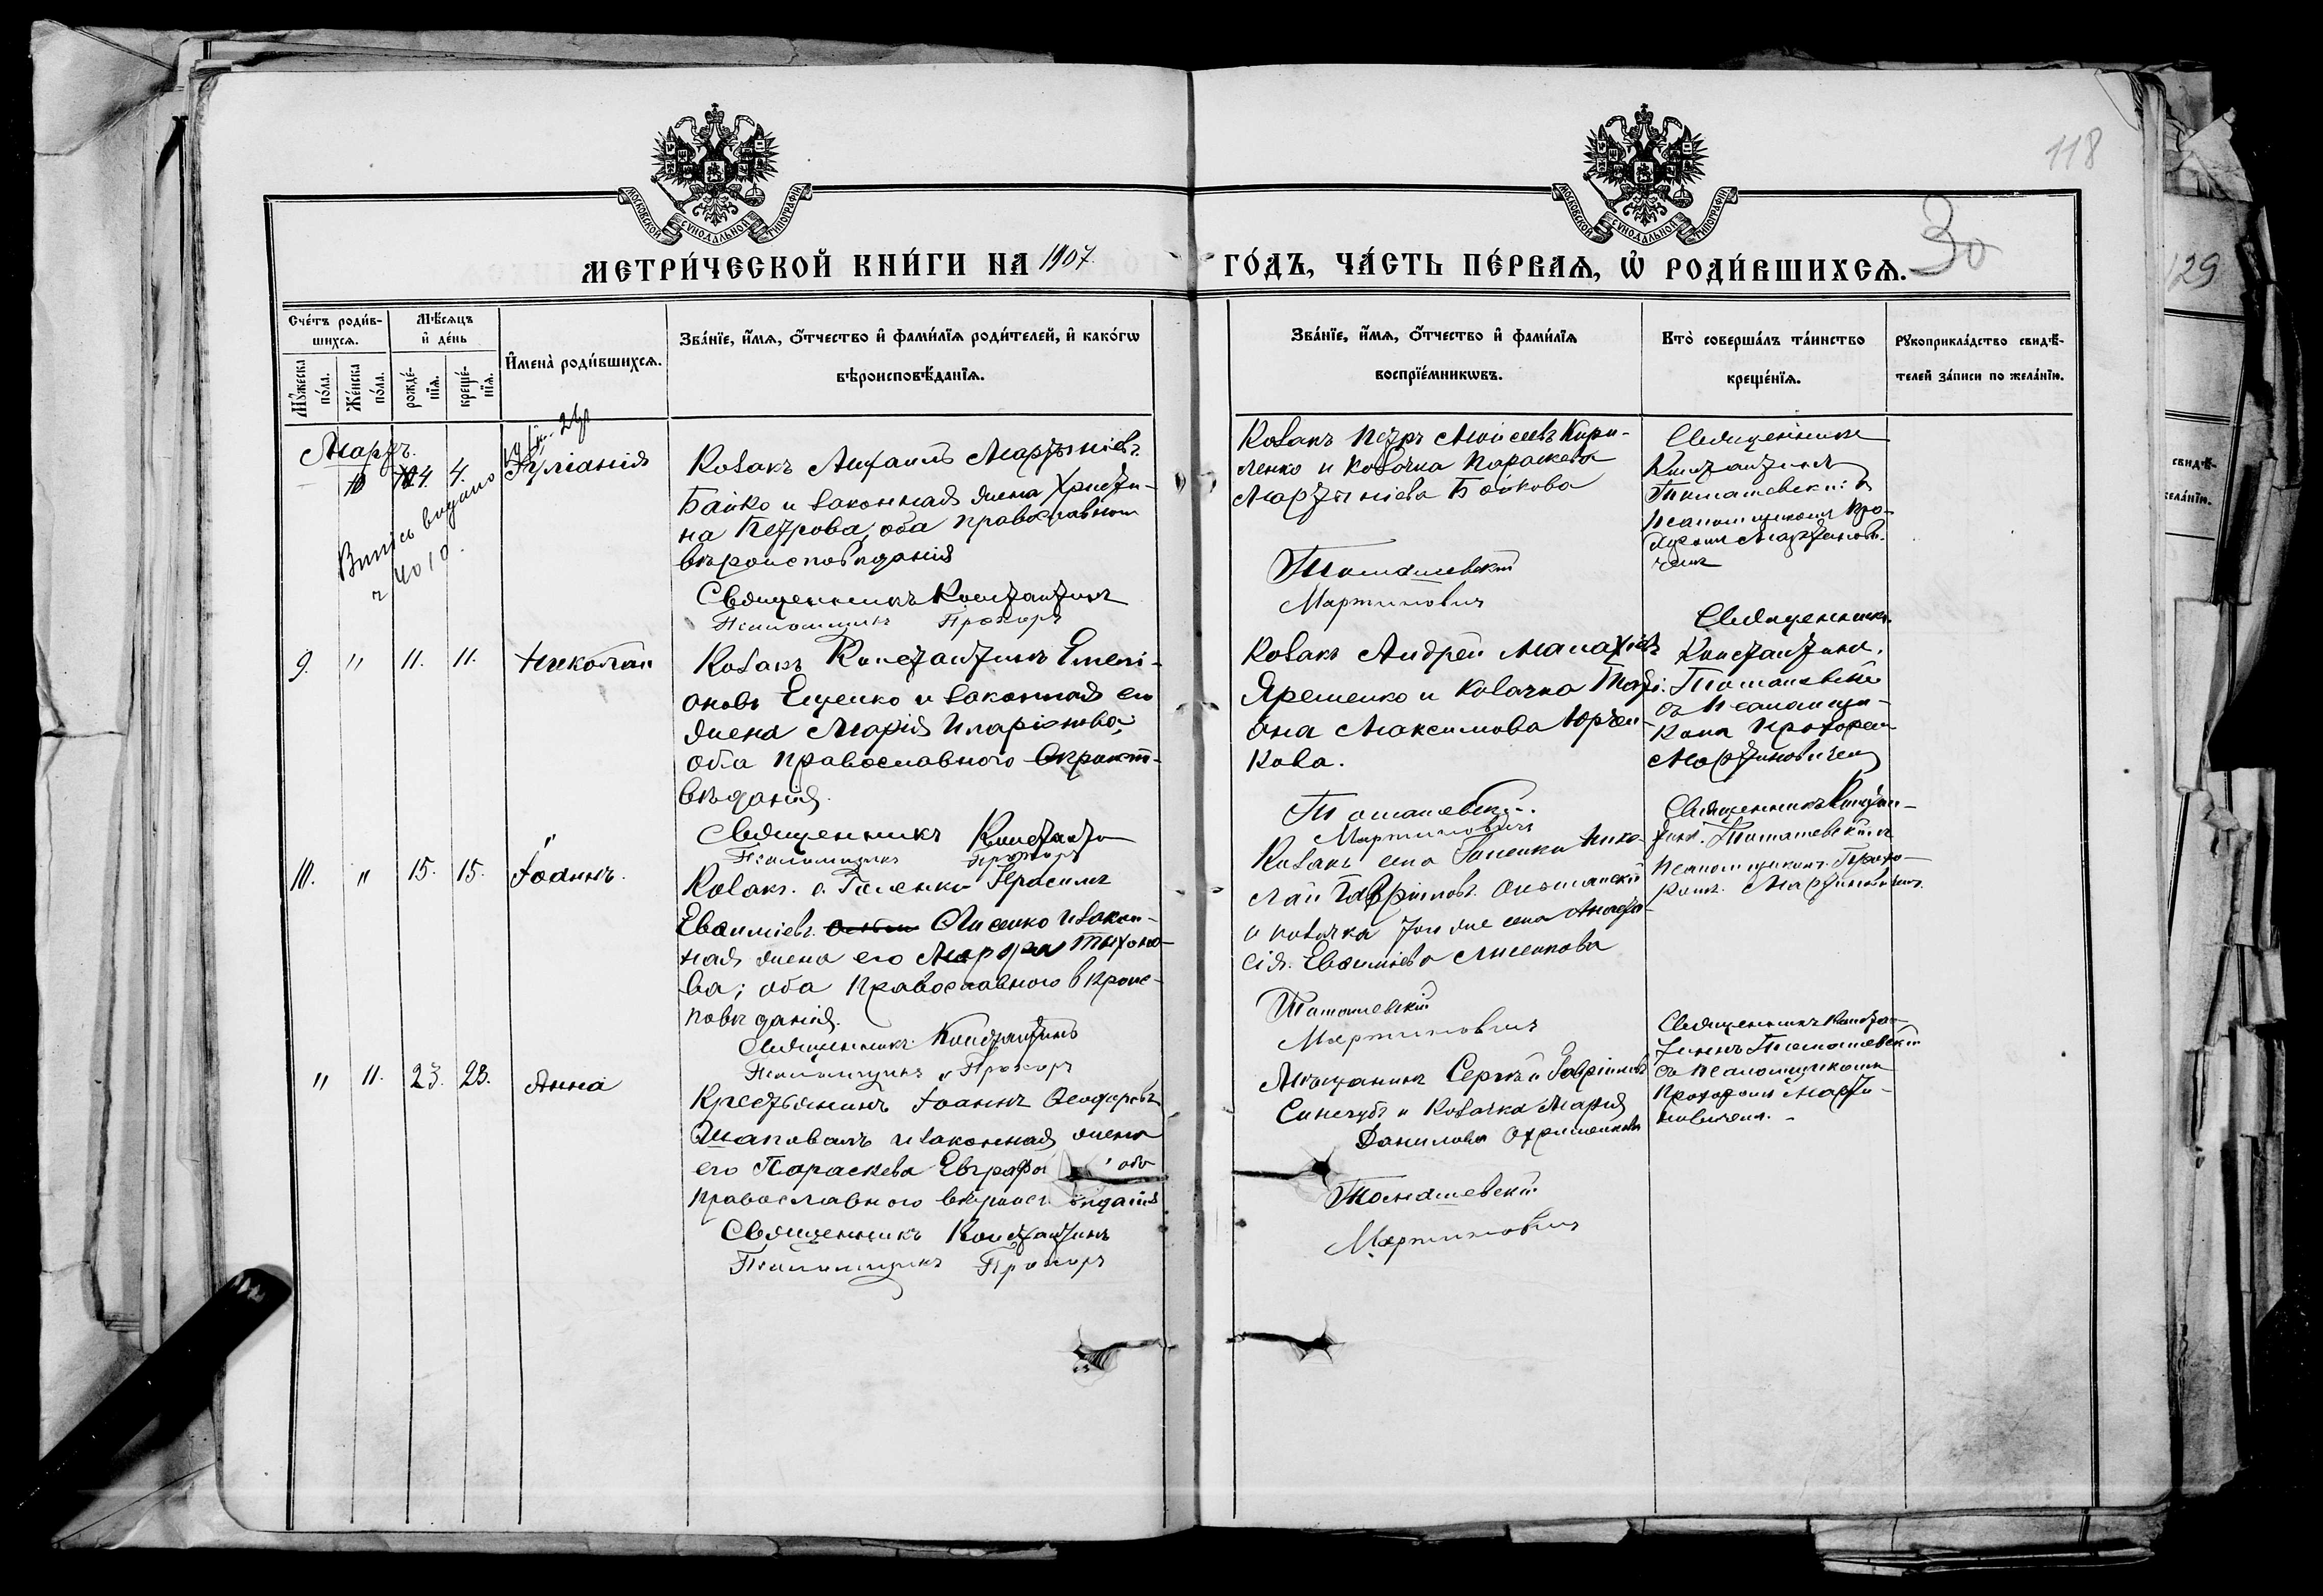 118
МОСКОВСКОЙ СѴНОДАЛЬНОЙ ТИПОГРАФІИ
МОСКОВСКОЙ СѴНОДАЛЬНОЙ ТИПОГРАФІИ
МЕТРИ́ЧЕСКОЙ КНИ́ГИ НА 1907.
ГО́ДЪ, ЧА́СТЬ ПЕ́РВАѦ, Ѡ҆ РОДИ́ВШИХСѦ.
30
129
Сче́тъ роди́в-
шихсѧ.
Мꙋ́жеска по́ла.
Же́нска по́ла.
Мѣ́сѧцъ
и҆ де́нь
рожде́-
нїѧ.
креще́-
нїѧ.
И҆мена̀ роди́вшихсѧ.
Зва́нїе, и҆́мѧ, ѻ҆́тчество и҆ фами́лїѧ роди́телей, и҆ како́гѡ
вѣроисповѣ́данїѧ.
Зва́нїе, и҆́мѧ, ѻ҆́тчество и҆ фами́лїѧ
воспрїе́мникѡвъ.
Кто̀ соверша́лъ та́инство
креще́нїѧ.
Рꙋкоприкла́дство свидѣ́-
телей за́писи по жела́нїю.
Мартъ.
10 4. 4. Іуліанія
Выпись выдана
Козакъ Михаилъ Мартыніевъ
Байко и законная жена Христи-
на Петрова, оба православнаго
вѣроисповѣданія
Священникъ Константинъ
Псаломщикъ Прохоръ
Козакъ Петръ Моисеевъ Кири-
ленко и козачка Параскева
Мартыніева Байкова
Томашевскій
Мартиновичъ
Священникъ
Константинъ
Томашевскій съ
псаломщикомъ Про-
хоромъ Мартинови-
чемъ
9. " 11. 11. Николай
Козакъ Константинъ Емелі-
ановъ Ещенко и законная его
жена Марія Иларіонова,
оба православнаго
вѣданія.
Священникъ Константи
Псаломщикъ Прохоръ
Козакъ Андрей Малахіевъ
Яременко и козачка Таті-
ана Максимова Юрчен-
кова.
Томашевскій.
Мартиновичъ
Священникъ
Константинъ.
Томашевскій
съ псаломщи-
комъ Прохоромъ
Мартиновичемъ
10. " 15. 15. Іоаннъ.
Козакъ с. Галенки Герасимъ
Евфиміевъ Лисенко и закон-
ная жена его Марфа Тихоно-
ва; оба православнаго вѣроис-
повѣданія.
Священникъ Константинъ
Псаломщикъ Прохоръ
Козакъ села Галенки Нико-
лай Гавріиловъ
и козачка того же села Анаста-
сія Евфиміева Лисенкова
Томашевскій
Мартиновичъ
Священникъ Констан-
тинъ Томашевскій съ
псаломщикомъ Прохо-
ромъ Мартиновичемъ.
" 11. 23. 23. Анна
Крестьянинъ Іоаннъ Ѳеодоровъ
Шаповалъ и законная жена
его Параскева Евграфо оба
православнаго вѣроисп вѣданія
Священникъ Константинъ
Псаломщикъ Прохоръ
Мѣщанинъ Сергѣй Гавріиловъ
Синегубъ и козачка Марія
Данилова Охрименкова
Томашевскій
Мартиновичъ
Священникъ Констан-
тинъ Томашевскій
съ псаломщикомъ
Прохоромъ Марти-
новичемъ.